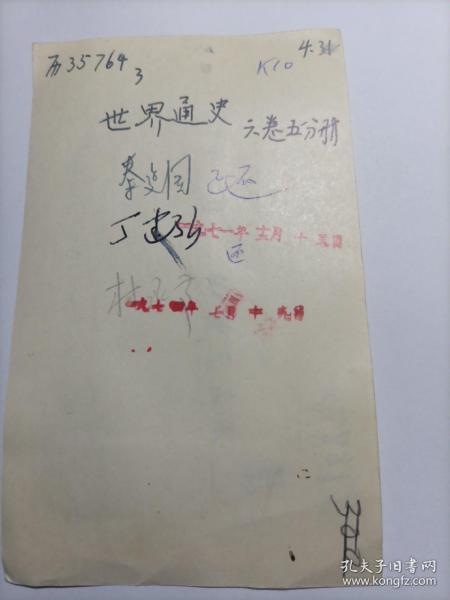 历35764
3
K10
4.31
世界通史 六卷五分册
秦 国 已还
丁建弘
一九七一年 十二月 十五日
还
杜
一九七四年 七月 十九日
孔夫子旧书网
www.kongfz.com